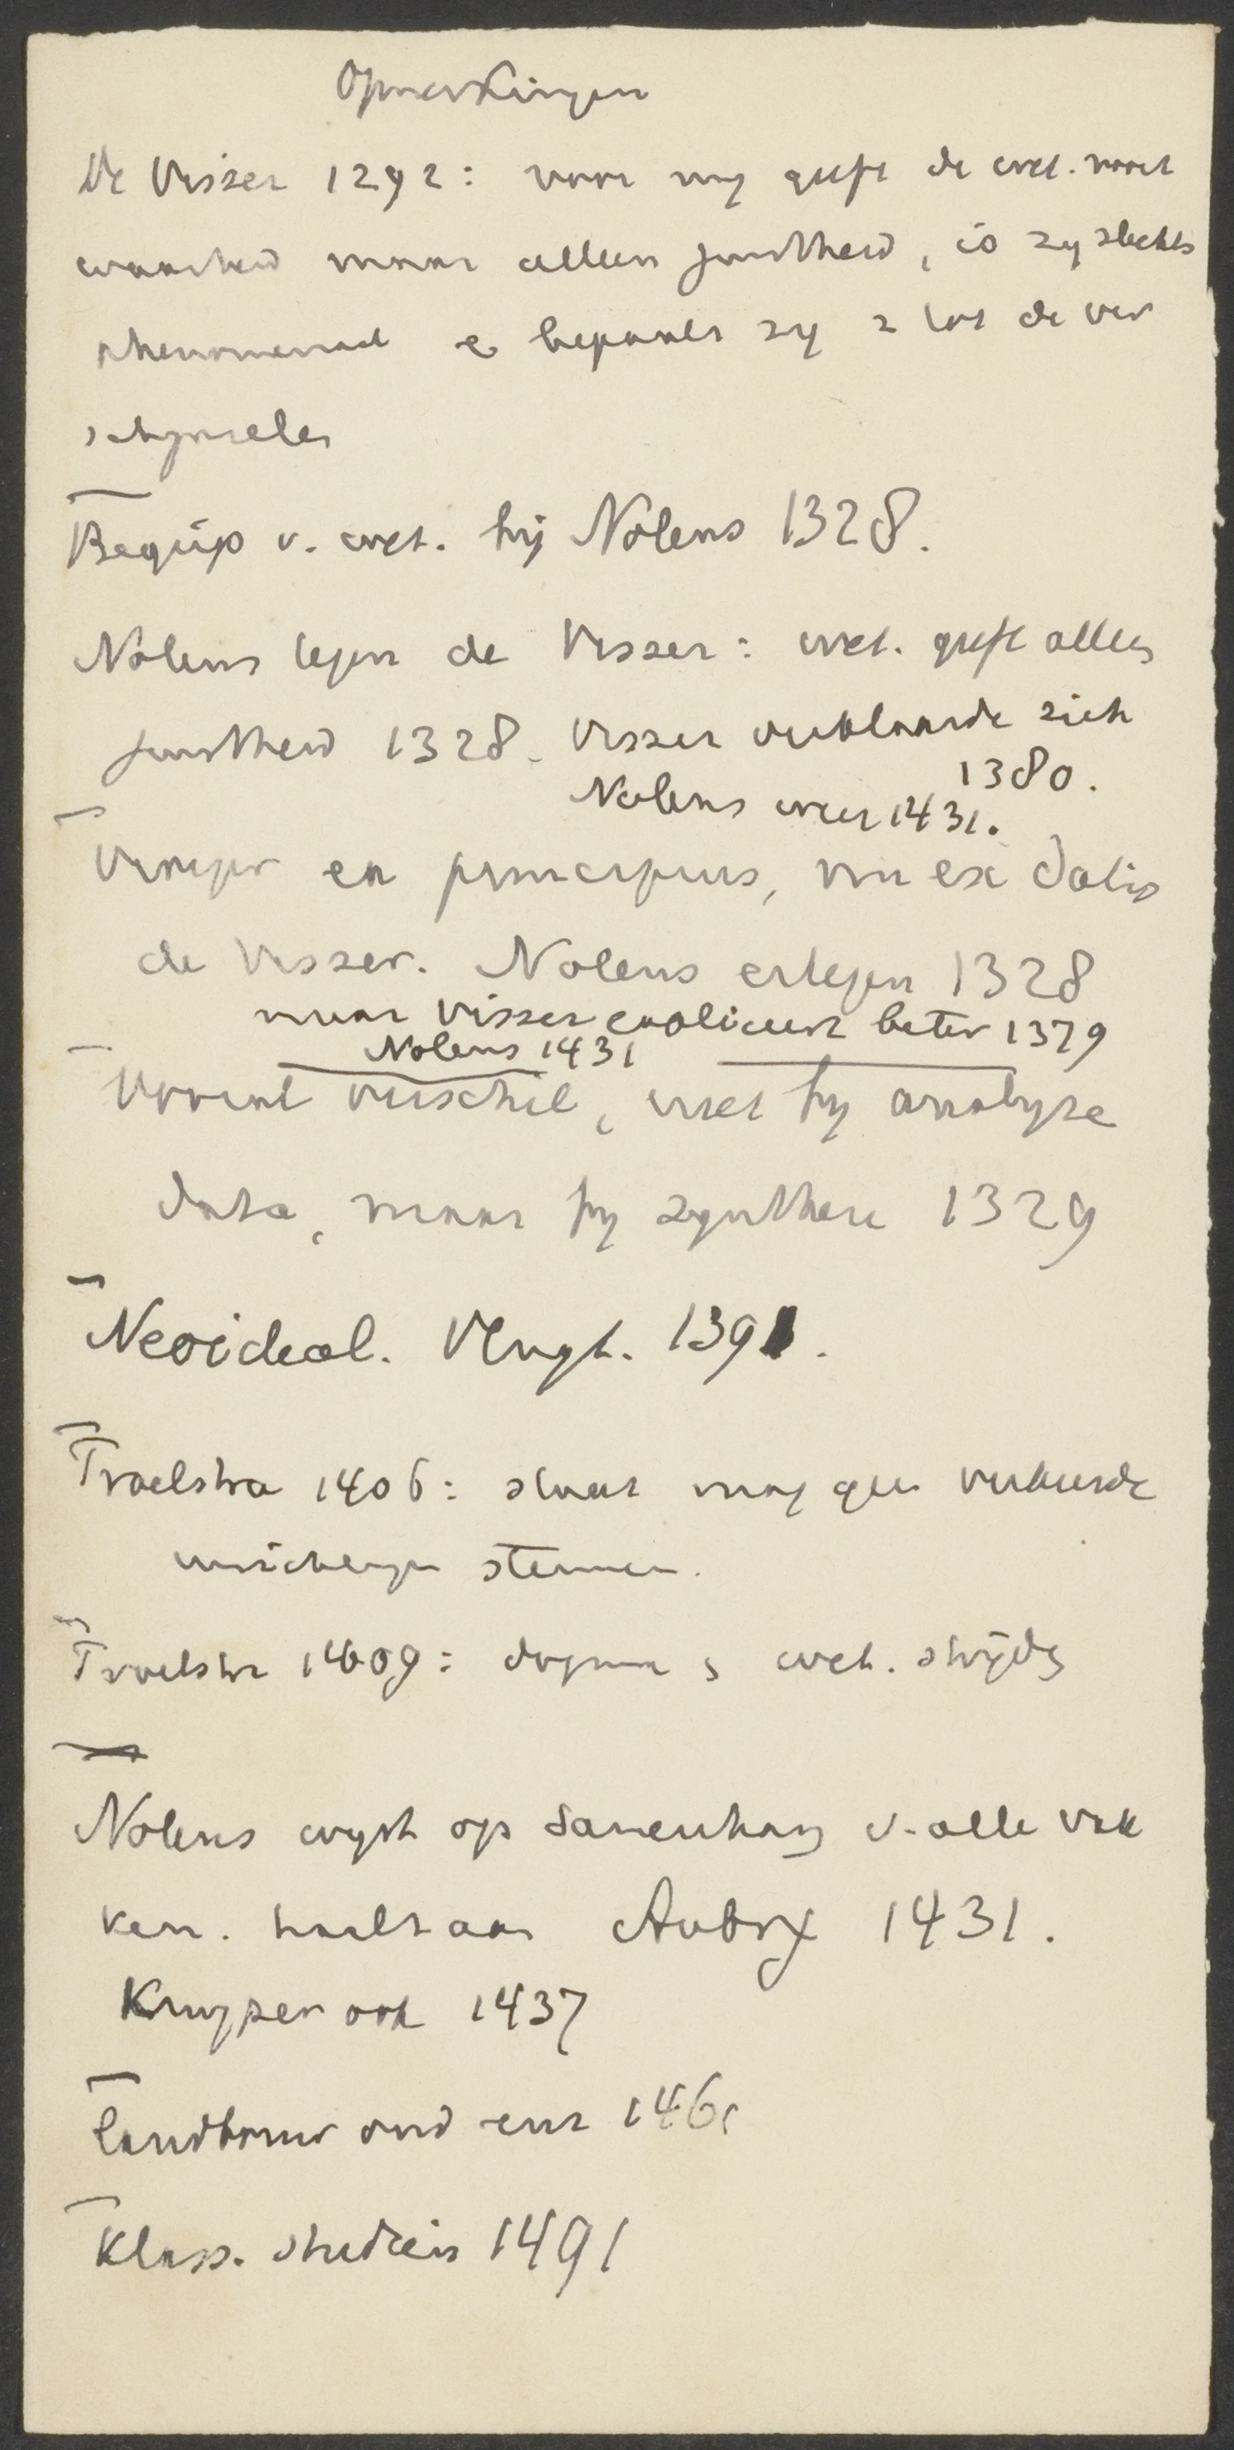 Opmerkingen
De Visser 1292: voor mij geeft de wet. nooit
waarheid maar alleen juistheid, is zij slechts
phenomenaal & bepaalt zij z tot de ver
schijnselen
Begrip v. wet. bij Nolens 1328.
Nolens tegen de Visser: wet. geeft alleen
juistheid 1328. Visser verklaarde zich
1380.
Nolens weer 1431.
Vroeger ex principiis, nu ex datis
de Visser. Nolens ertegen 1328
maar Visser expliceert beter 1379
Nolens 1431
vooral verschil, niet bij analyse
data, maar bij synthese 1329
Neoideal. Vlugt. 1391.
Troelstra 1406: staat mag geen verkeerde
stemmen.
Troelstra 1409: dogma & wet. strijdig
Nolens wijst op samenhang v. alle vak
ken. haalt aan Aubry 1431.
Kuyper ook 1437
Landbouw ond 146
Klass. studiën 1491